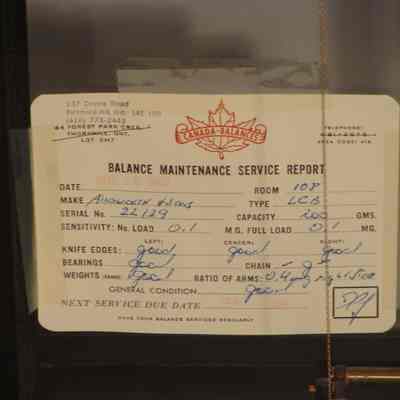 Road
(416) 773-2443
64 FOREST PARK CRES.
THORNHILL, ONT.
L3T 2M7
CANADA-BALANCES
TELEPHONE:
AREA CODE: 416
BALANCE MAINTENANCE SERVICE REPORT
DATE ROOM 108
MAKE TYPE LCB
SERIAL No. 22129 CAPACITY 200 GMS.
SENSITIVITY: No. LOAD 0.1 M.G. FULL LOAD 0.1 MG.
LEFT: CENTER: RIGHT:
KNIFE EDGES: good good good
BEARINGS good CHAIN -
WEIGHTS good RATIO OF ARMS: 0.4
GENERAL CONDITION good
NEXT SERVICE DUE DATE
HAVE YOUR BALANCE SERVICED REGULARLY